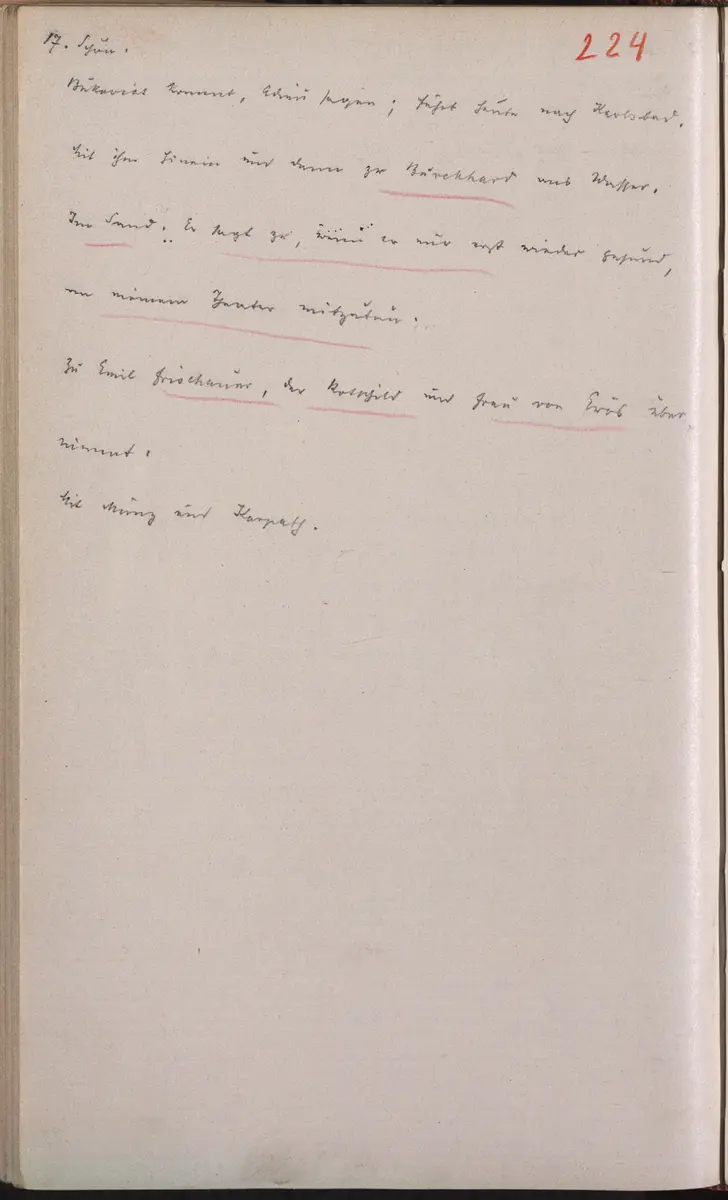 224
17. Schön.
Bukovics kommt, Adieu sagen; fährt heute nach Karlsbad.
Mit ihm hinein und dann zu Burckhard ans Wasser.
Im Sand. Er sagt zu, wenn er nur erst wieder gesund,
an meinem Theater mitzutun.
Zu Emil Frischauer, der Rotschild und Frau von Erös über
nimmt.
Mit Münz und Karpath.